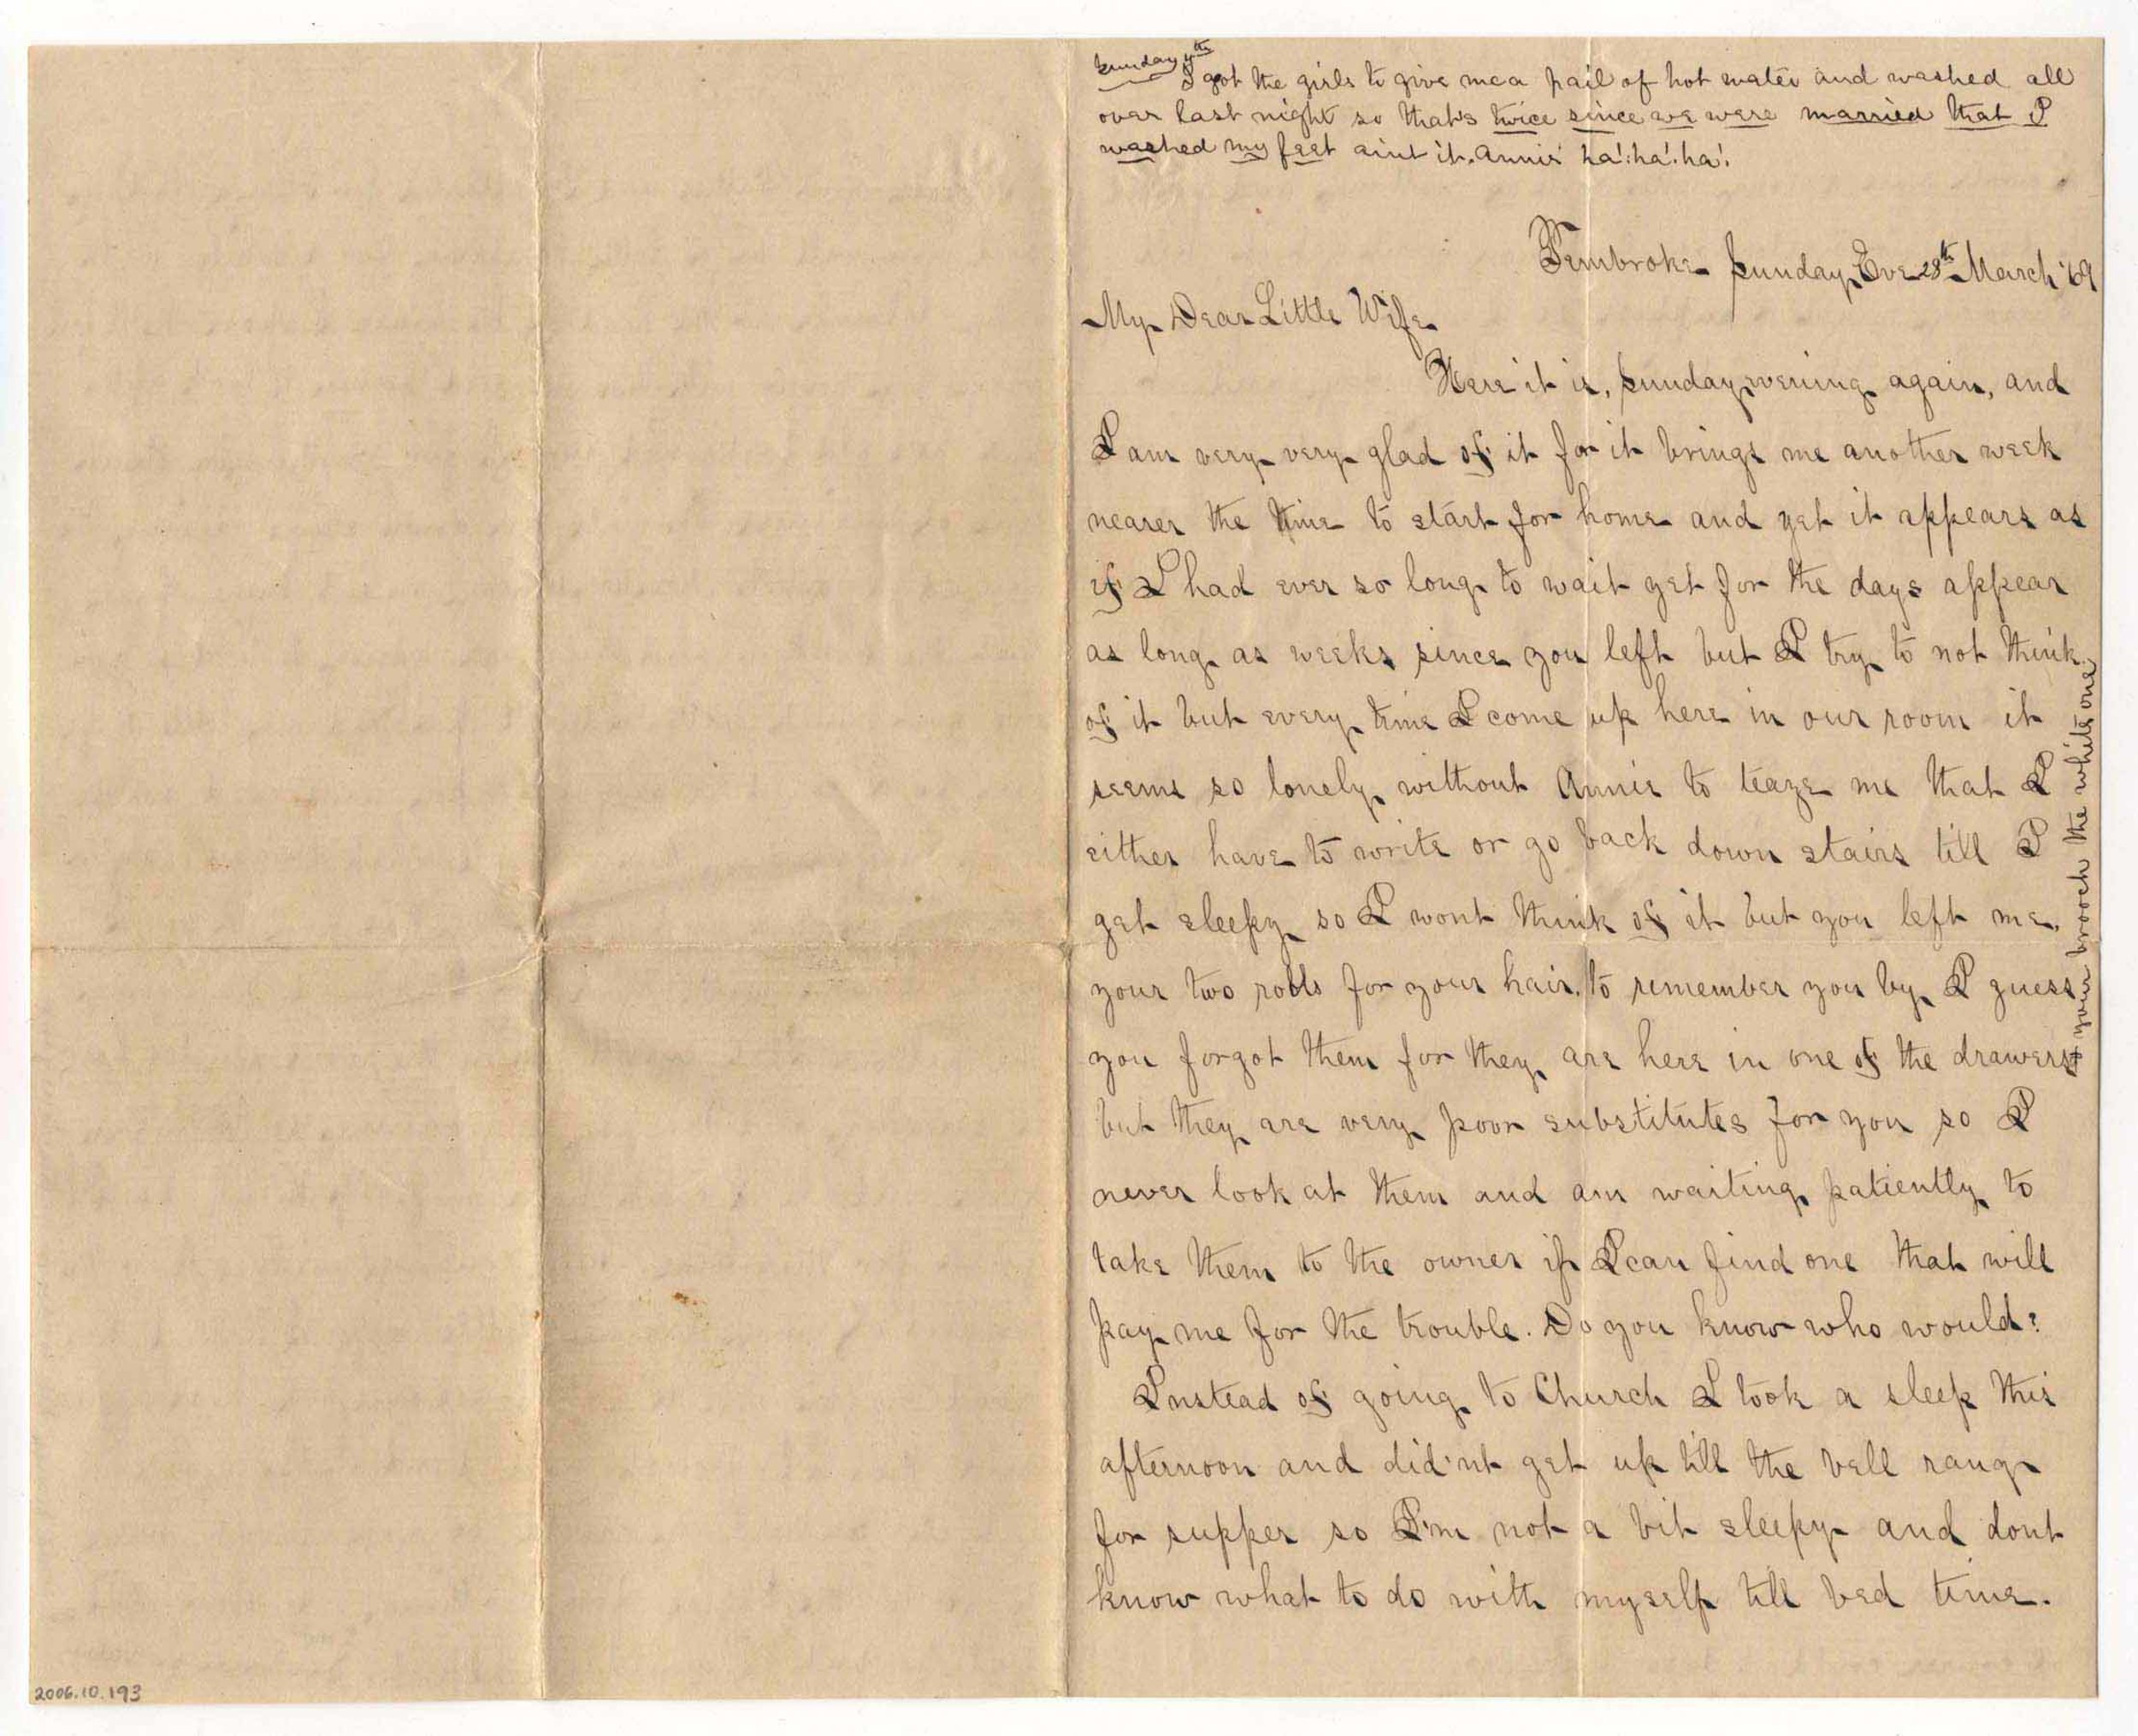 Sunday
I got the girls to give me a pail of hot water and washed all
over last night so that's twice since we were married that I
washed my feet aint it. Annie ha! ha! ha!
Pembroke Sunday Eve 28th March '69
My Dear Little Wife
Here it is, Sunday evening again, and
I am very very glad of it for it brings me another week
nearer the time to start for home and yet it appears as
if I had ever so long to wait yet for the days appear
as long as weeks since you left but I try to not think
of it but every time I come up here in our room it
seems so lonely without Annie to teaze me that I
either have to write or go back down stairs till I
get sleepy so I wont think of it but you left me
your two rolls for your hair, to remember you by I guess
you forgot them for they are here in one of the drawers
+ your brooch the white one
but they are very poor substitutes for you so I
never look at them and am waiting patiently to
take them to the owner if I can find one that will
pay me for the trouble. Do you know who would?
Instead of going to Church I took a sleep this
afternoon and did'nt get up till the bell rang
for supper so I'm not a bit sleepy and dont
know what to do with myself till bed time.
2006.10.193